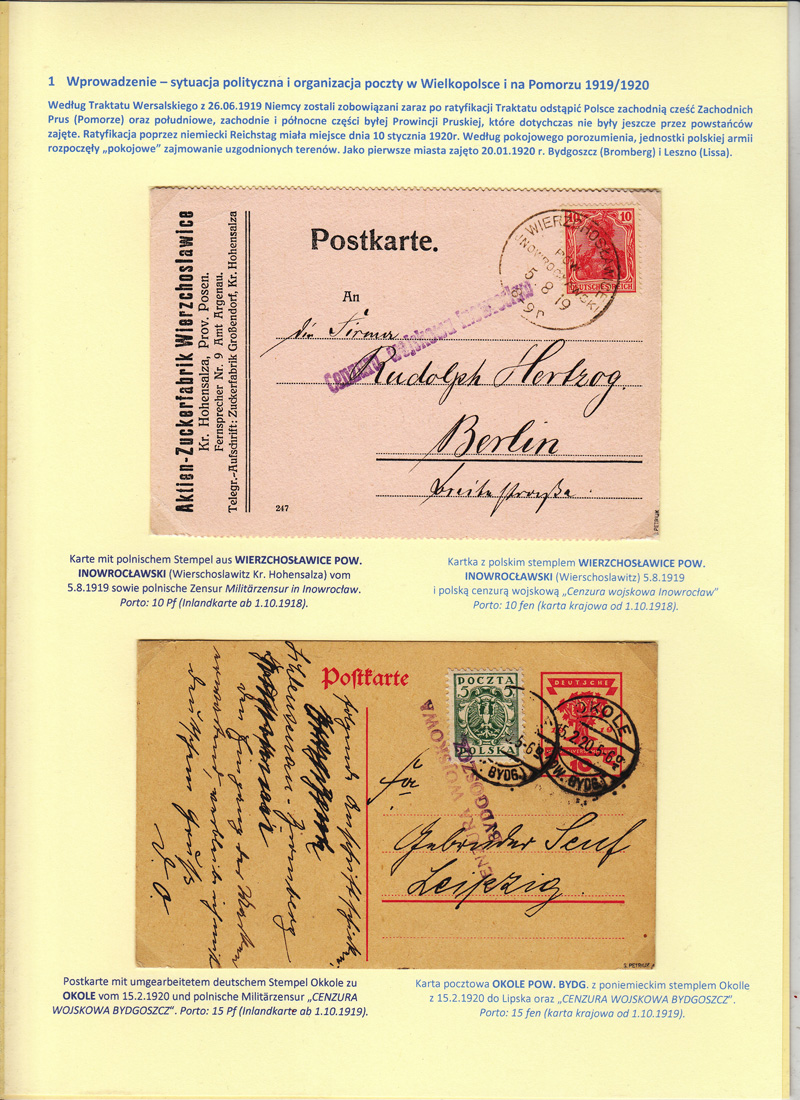 1 Wprowadzenie – sytuacja polityczna i organizacja poczty w Wielkopolsce i na Pomorzu 1919/1920
Według Traktatu Wersalskiego z 26.06.1919 Niemcy zostali zobowiązani zaraz po ratyfikacji Traktatu odstąpić Polsce zachodnią cześć Zachodnich
Prus (Pomorze) oraz południowe, zachodnie i północne części byłej Prowincji Pruskiej, które dotychczas nie były jeszcze przez powstańców
zajęte. Ratyfikacja poprzez niemiecki Reichstag miała miejsce dnia 10 stycznia 1920r. Według pokojowego porozumienia, jednostki polskiej armii
rozpoczęły „pokojowe” zajmowanie uzgodnionych terenów. Jako pierwsze miasta zajęto 20.01.1920 r. Bydgoszcz (Bromberg) i Leszno (Lissa).
Aktien-Zuckerfabrik Wierzchoslawice
Kr. Hohensalza, Prov. Posen.
Fernsprecher Nr. 9 Amt Argenau.
Telegr.-Aufschrift: Zuckerfabrik Großendorf, Kr. Hohensalza
Postkarte.
10 10
DEUTSCHES REICH
WIERZCHOSŁAWICE
POW.
INOWROCŁAWSKI
5 8 19
An
die Firma
Cenzura wojskowa Inowrocław
Rudolph Hertzog.
Berlin
Breitestraße.
247
S. PETRIUK
Karte mit polnischem Stempel aus WIERZCHOSŁAWICE POW.
INOWROCŁAWSKI (Wierschoslawitz Kr. Hohensalza) vom
5.8.1919 sowie polnische Zensur Militärzensur in Inowrocław.
Porto: 10 Pf (Inlandkarte ab 1.10.1918).
Kartka z polskim stemplem WIERZCHOSŁAWICE POW.
INOWROCŁAWSKI (Wierschoslawitz) 5.8.1919
i polską cenzurą wojskową „Cenzura wojskowa Inowrocław”
Porto: 10 fen (karta krajowa od 1.10.1918).
Postkarte
POCZTA
5 5
POLSKA
DEUTSCHE
OKOLE
15.2.20.5-6N.
BYDG.
CENZURA WOJSKOWA
BYDGOSZCZ
Fa
Gebrüder Senf
Leipzig.
S. PETRIUK
Postkarte mit umgearbeitetem deutschem Stempel Okkole zu
OKOLE vom 15.2.1920 und polnische Militärzensur „CENZURA
WOJSKOWA BYDGOSZCZ”. Porto: 15 Pf (Inlandkarte ab 1.10.1919).
Karta pocztowa OKOLE POW. BYDG. z poniemieckim stemplem Okolle
z 15.2.1920 do Lipska oraz „CENZURA WOJSKOWA BYDGOSZCZ”.
Porto: 15 fen (karta krajowa od 1.10.1919).